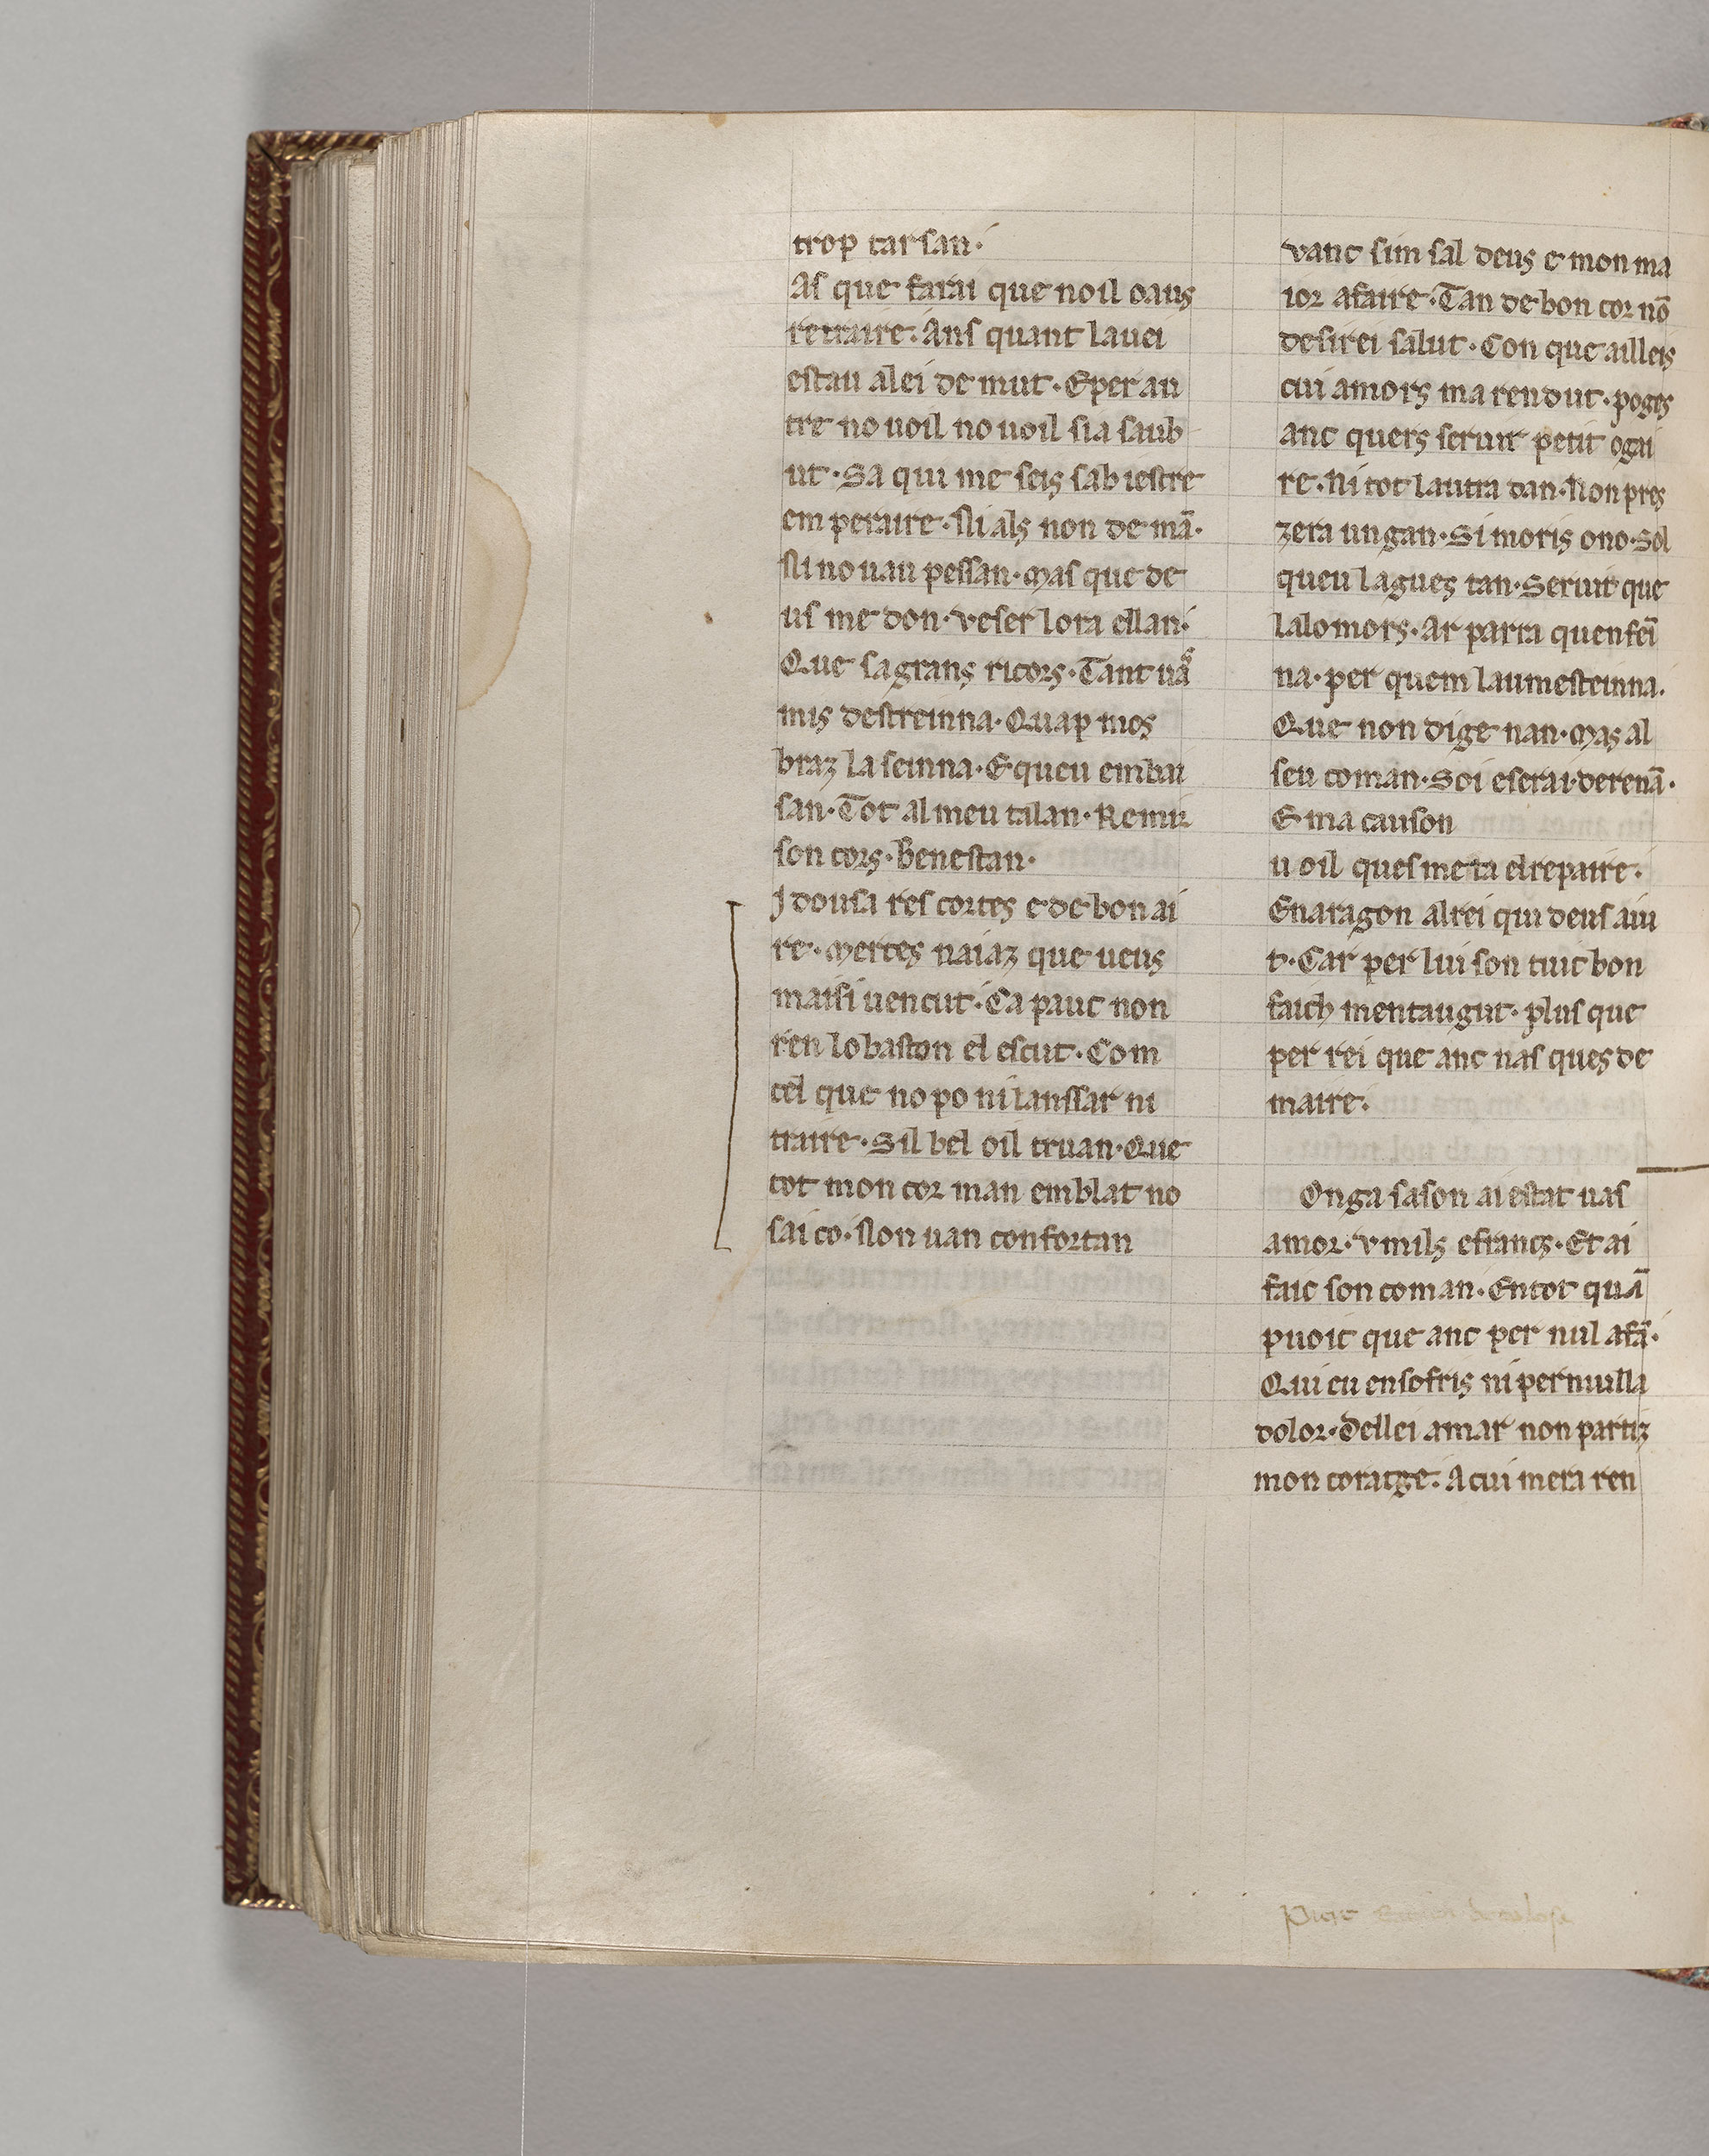 trop tarsan·
As que farai que no il oaus
retraire· Ans quant lauei
estau a lei de mut· E per au
tre no uoil no uoil sia saub
ut· Sa qui me seis sab iestre
em peraire· Ni als non de mā·
Ni no uau pessan· Mas que de
us me don· veser lora ellan·
Que sa grans ricors· Tant ua
mis destreinna· Qua p mos
braz la seinna· E queu embai
san· Tot al meu talan· Remir
son cors· Benestan·
I dousa res cortes e de bon ai
re· Merces naiaz que ueus
maisi uencut· Ca pauc non
ren lo baston el escut· Com
cel que no po ni lanssar ni
traire· Sil bel oil truan· Que
tot mon cor man emblat no
sai co· Non uan confortan
vanc sim sal deus e mon ma
ior afaire· Tan de bon cor nō
desirei salut· Con que ailleis
cui amors ma rendut· poges
anc quers seruir petit o gai
re· Ni tot lautra dan· Non pres
zera un gan· Si moris o no· Sol
queu lagues tan· Seruit que
lalo mors· Ar parra quen fei
na· per quem laumesteinna·
Que non dige nan· Mas al
seu coman· Soi e serai derenā·
E ma causon
u oil ques meta el repaire·
En aragon al rei qui deus aiu
t· Car per lui son tuit bon
faich mentaugut· plus que
per rei que anc nas ques de
maire·
Onga sason ai estat uas
amor· vmils e francs· Et ai
faic son coman· En tot quā
puoic que anc per nul afā·
Qui eu en sofris ni per nulla
dolor· Dellei amar non partiz
mon coratge· A cui mera ren
Piere